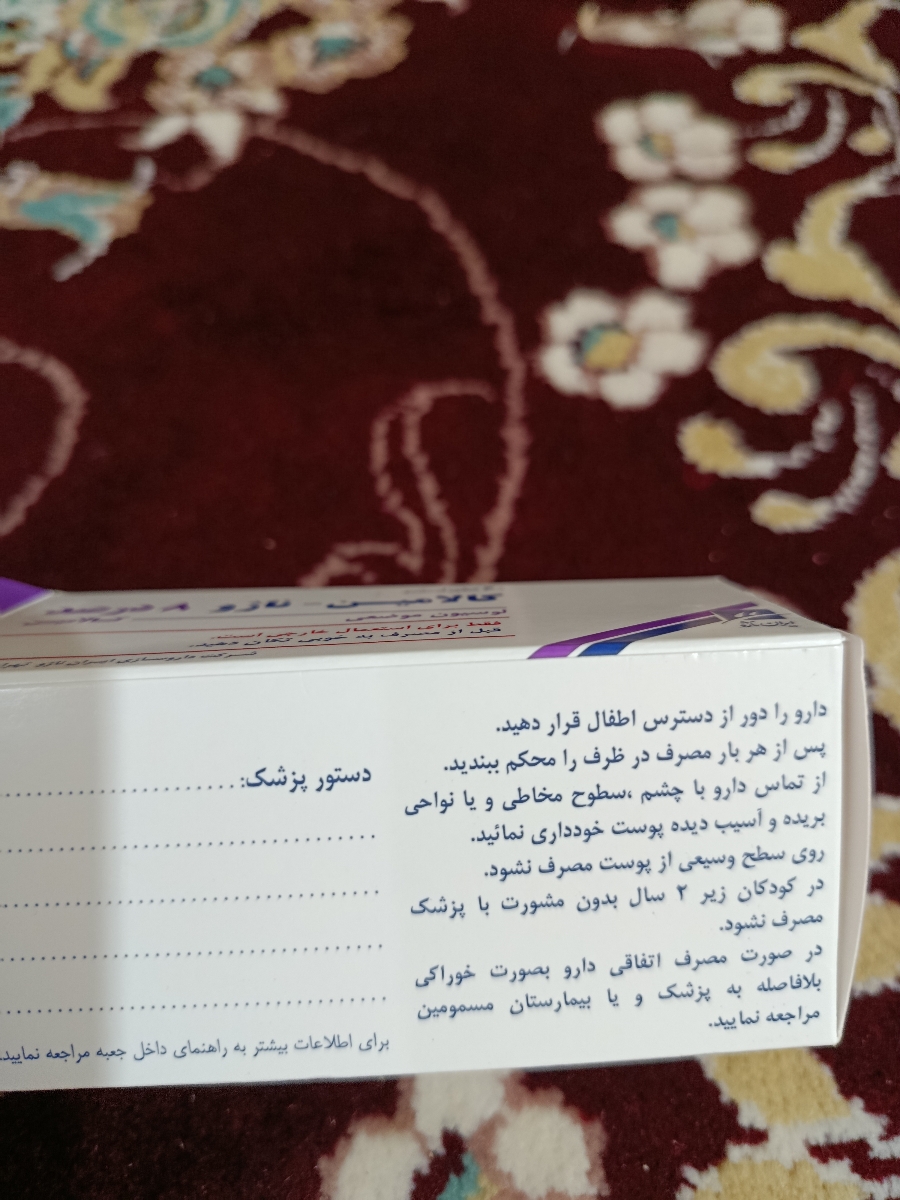 کالامین - نازو ۸ درصد
لوسیون موضعی
فقط برای استعمال خارجی است.
قبل از مصرف به خوبی تکان دهید.
شرکت داروسازی ایران نازو تهران
دارو را دور از دسترس اطفال قرار دهید.
پس از هر بار مصرف در ظرف را محکم ببندید.
از تماس دارو با چشم ،سطوح مخاطی و یا نواحی
بریده و آسیب دیده پوست خودداری نمائید.
روی سطح وسیعی از پوست مصرف نشود.
در کودکان زیر ۲ سال بدون مشورت با پزشک
مصرف نشود.
در صورت مصرف اتفاقی دارو بصورت خوراکی
بلافاصله به پزشک و یا بیمارستان مسمومین
مراجعه نمایید.
دستور پزشک:
برای اطلاعات بیشتر به راهنمای داخل جعبه مراجعه نمایید.